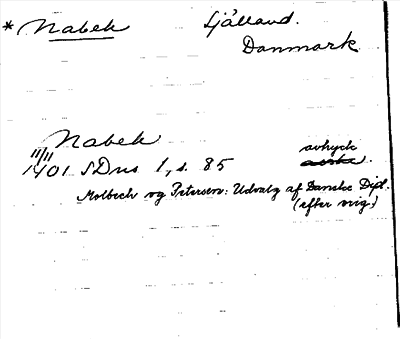 * Nabek Själland.
Danmark.
Nabek avtryck
11/11 1401 SDns 1, s. 85
Molbech og Petersen: Udvalg af Danske Dipl.
(efter orig.)